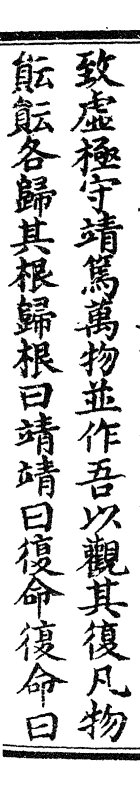 致虛極守靖篤萬物並作吾以觀其復凡物
䢵䢵各歸其根歸根曰靖靖曰復命復命曰